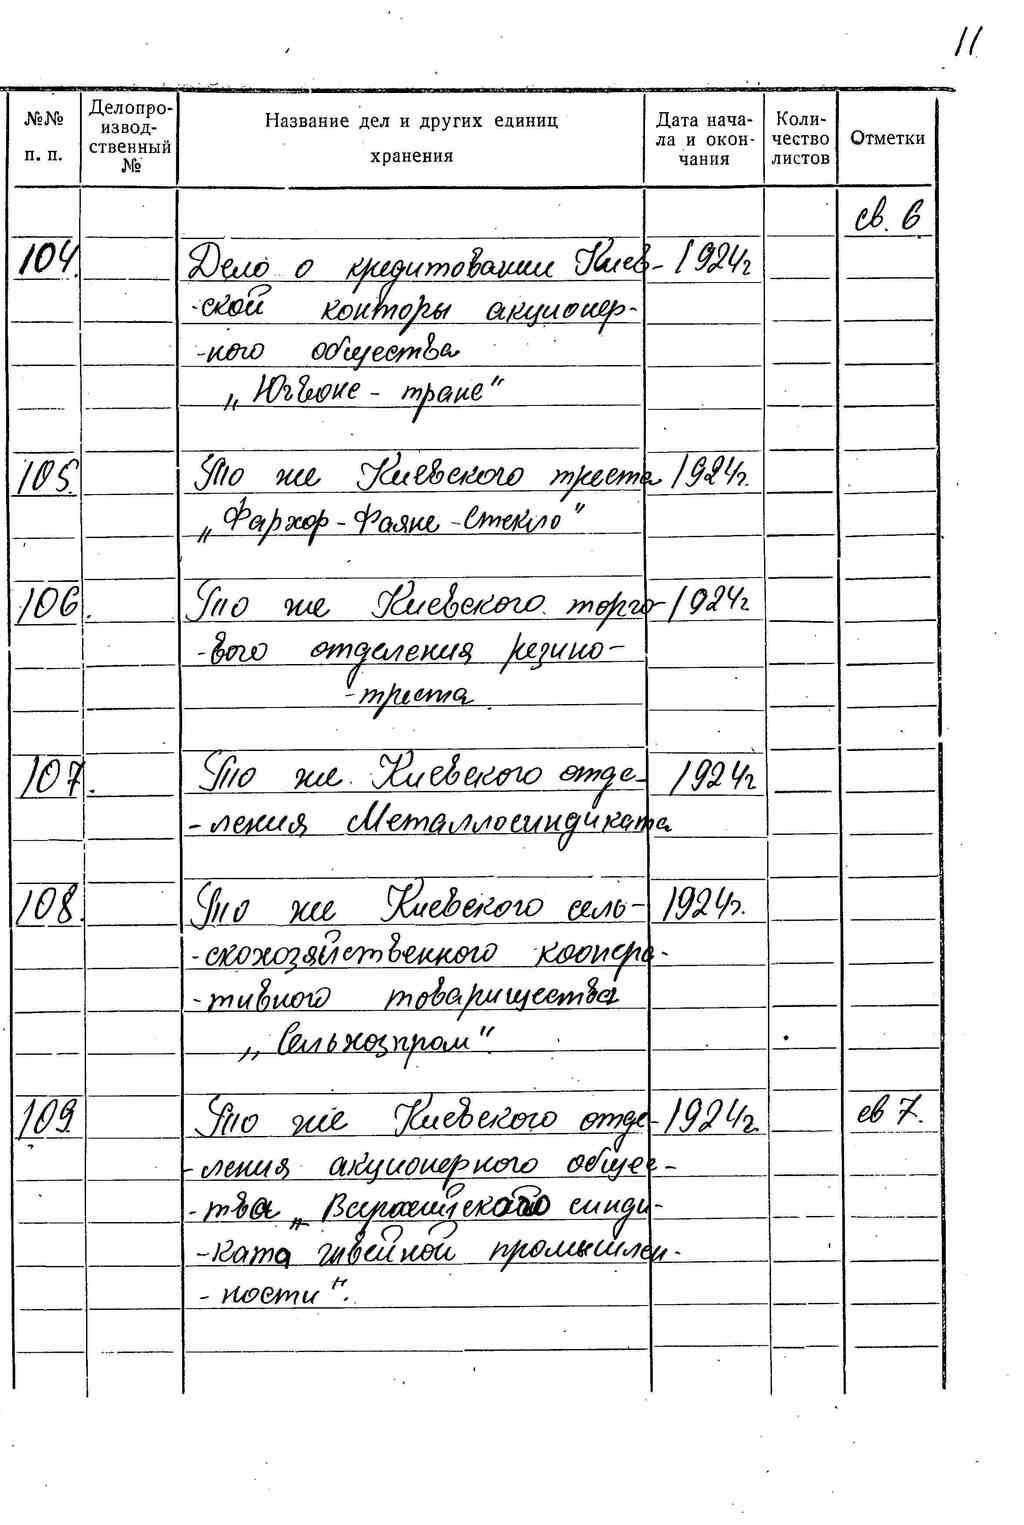 11
№№ п. п.
Делопро-
извод-
ственный
№
Название дел и других единиц
хранения
Дата нача-
ла и окон-
чания
Коли-
чество
листов
Отметки
св. 6
104. Дело о кредитовании Киев- 1924г
-ской конторы акционер-
-ного общества
- транс"
105. То же Киевского треста 1924г.
„Фарфор-Фаянс-Стекло"
106. То же Киевского торго- 1924г
-вого отделения резино-
-треста
107. То же Киевского отде- 1924г
-ления Металлосиндиката
108. То же Киевского сель- 1924г.
-скохозяйственного коопера-
-тивного товарищества
„Сельхозпром".
109 То же Киевского отде- 1924г. св 7.
-ления акционерного общес-
-тва „Всеросийского синди-
-ката швейной промышлен-
-ности".